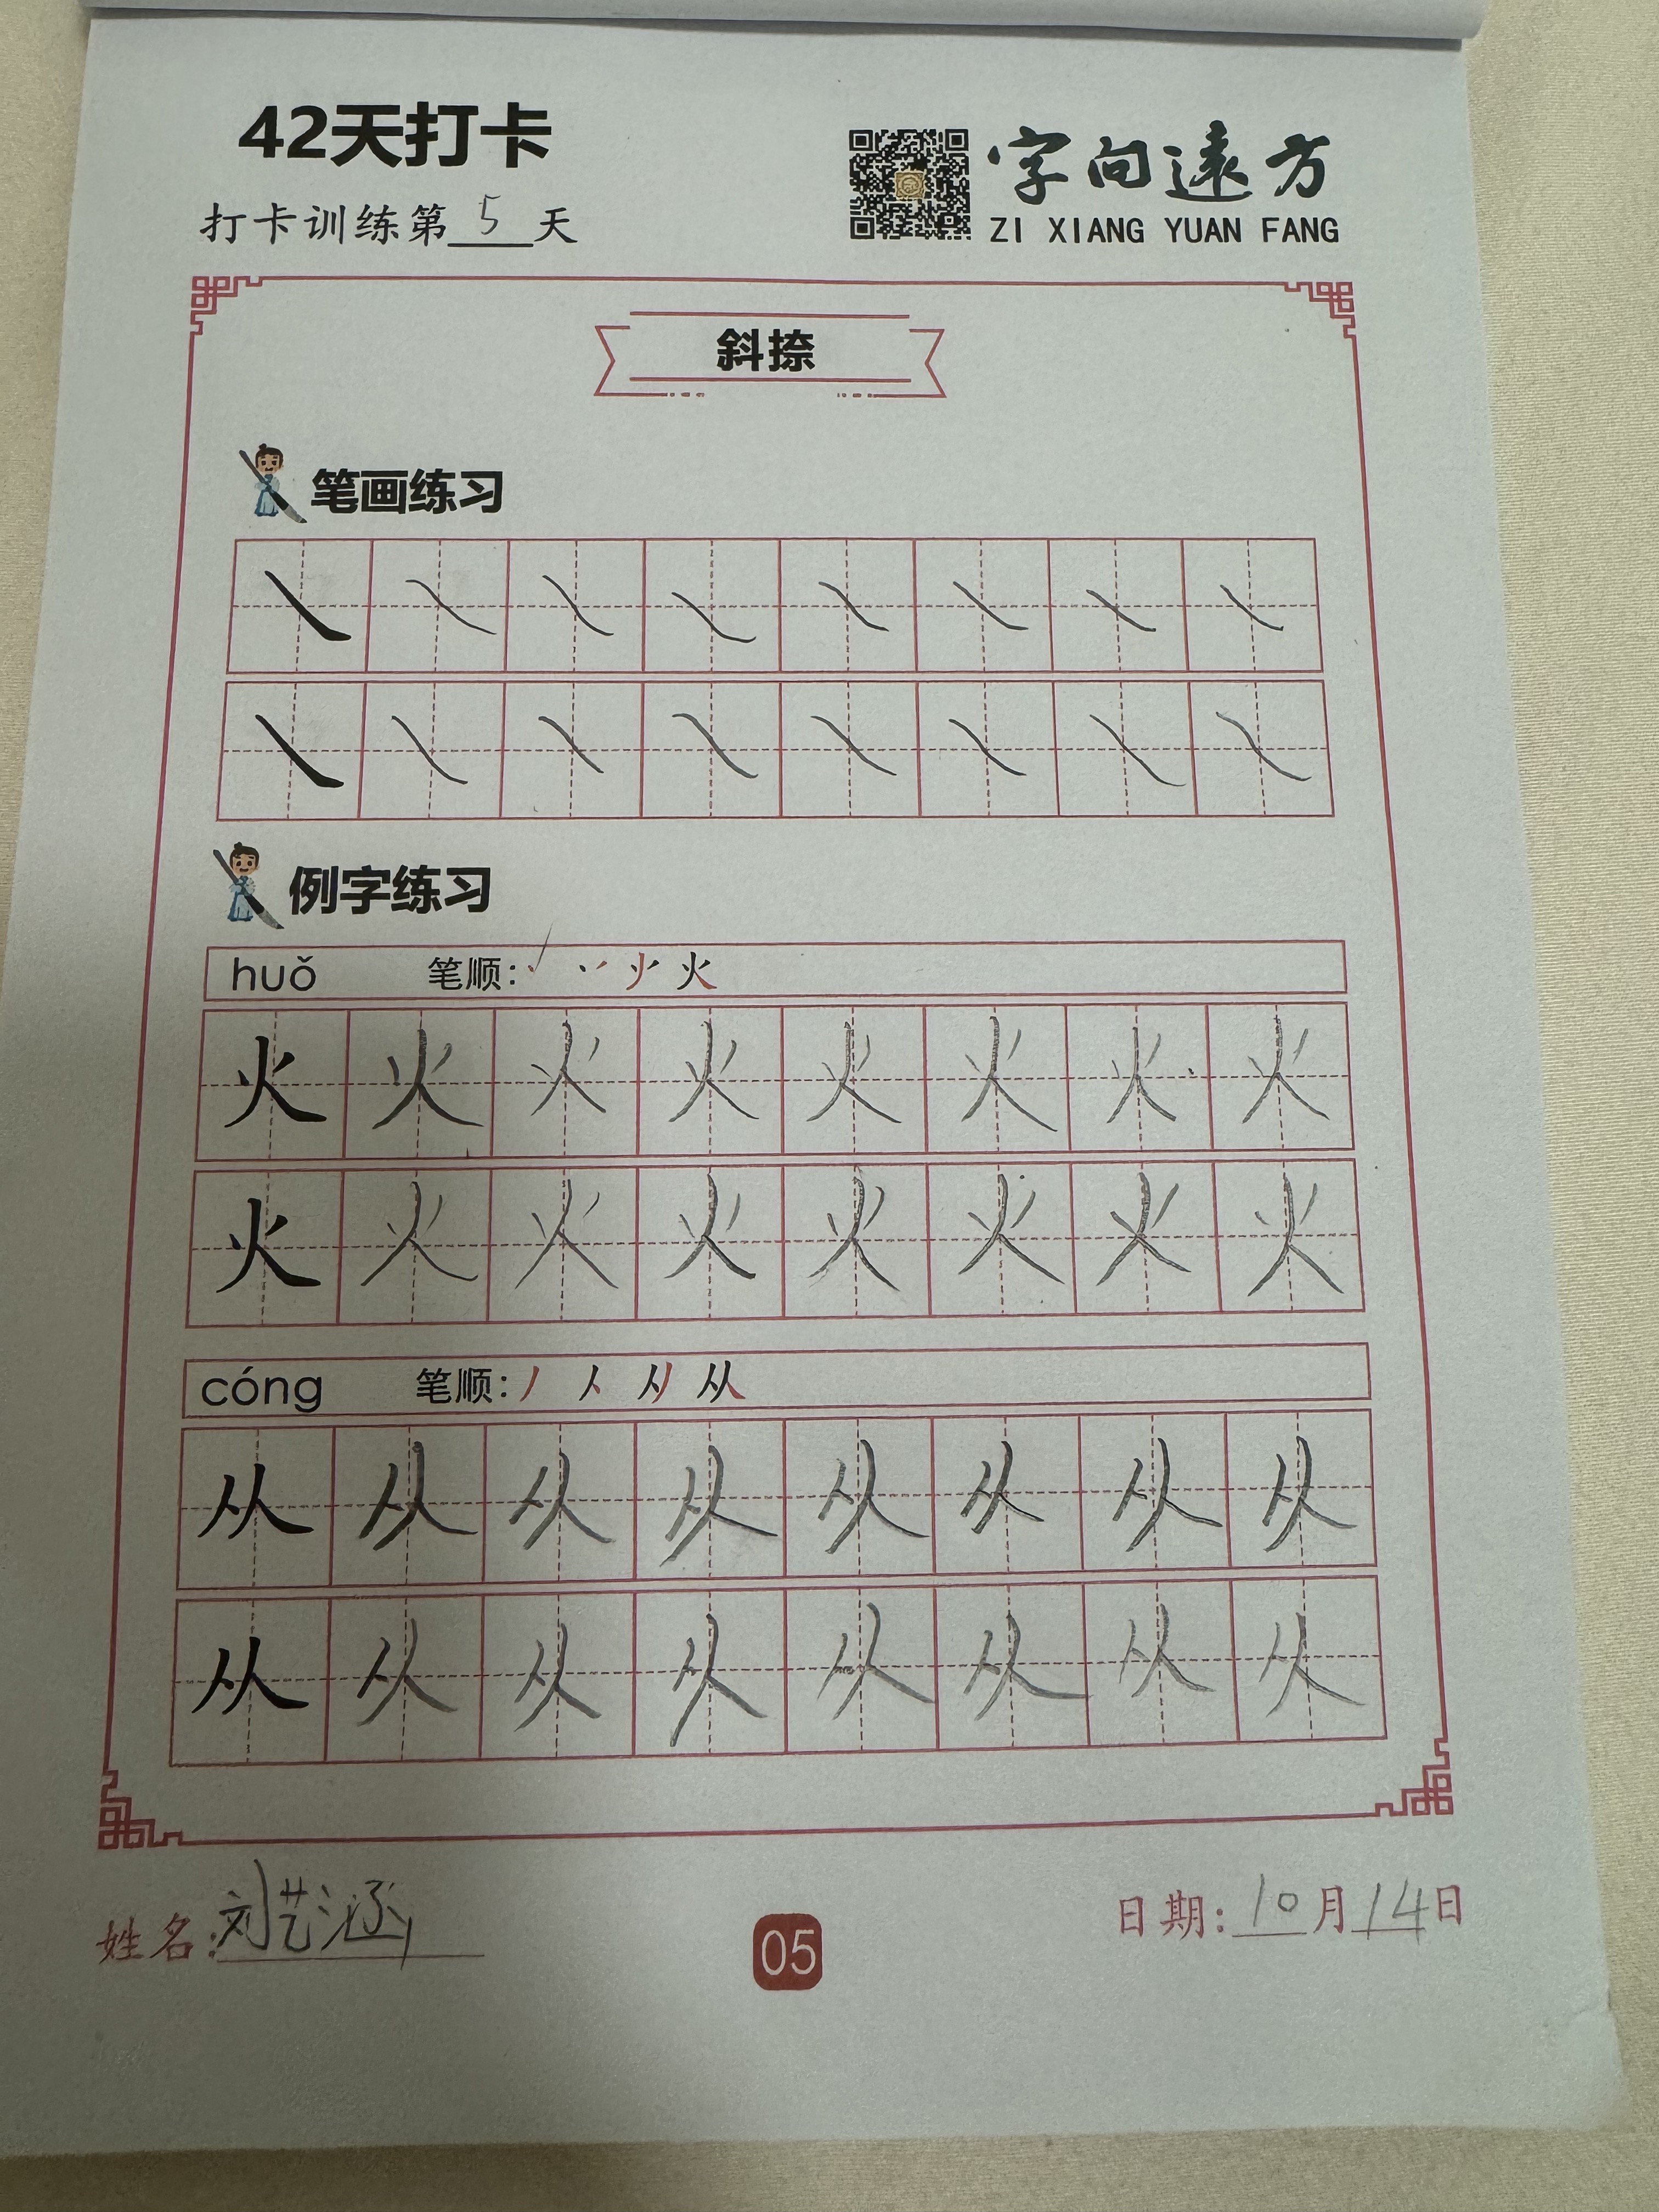 42天打卡
打卡训练第5天
字向遠方
ZI XIANG YUAN FANG
斜捺
笔画练习
例字练习
huǒ 笔顺:
火 火 火 火 火 火 火 火
火 火 火 火 火 火 火 火
cóng 笔顺:
从 从 从 从 从 从 从 从
从 从 从 从 从 从 从 从
姓名:刘艺涵
05
日期:10月14日